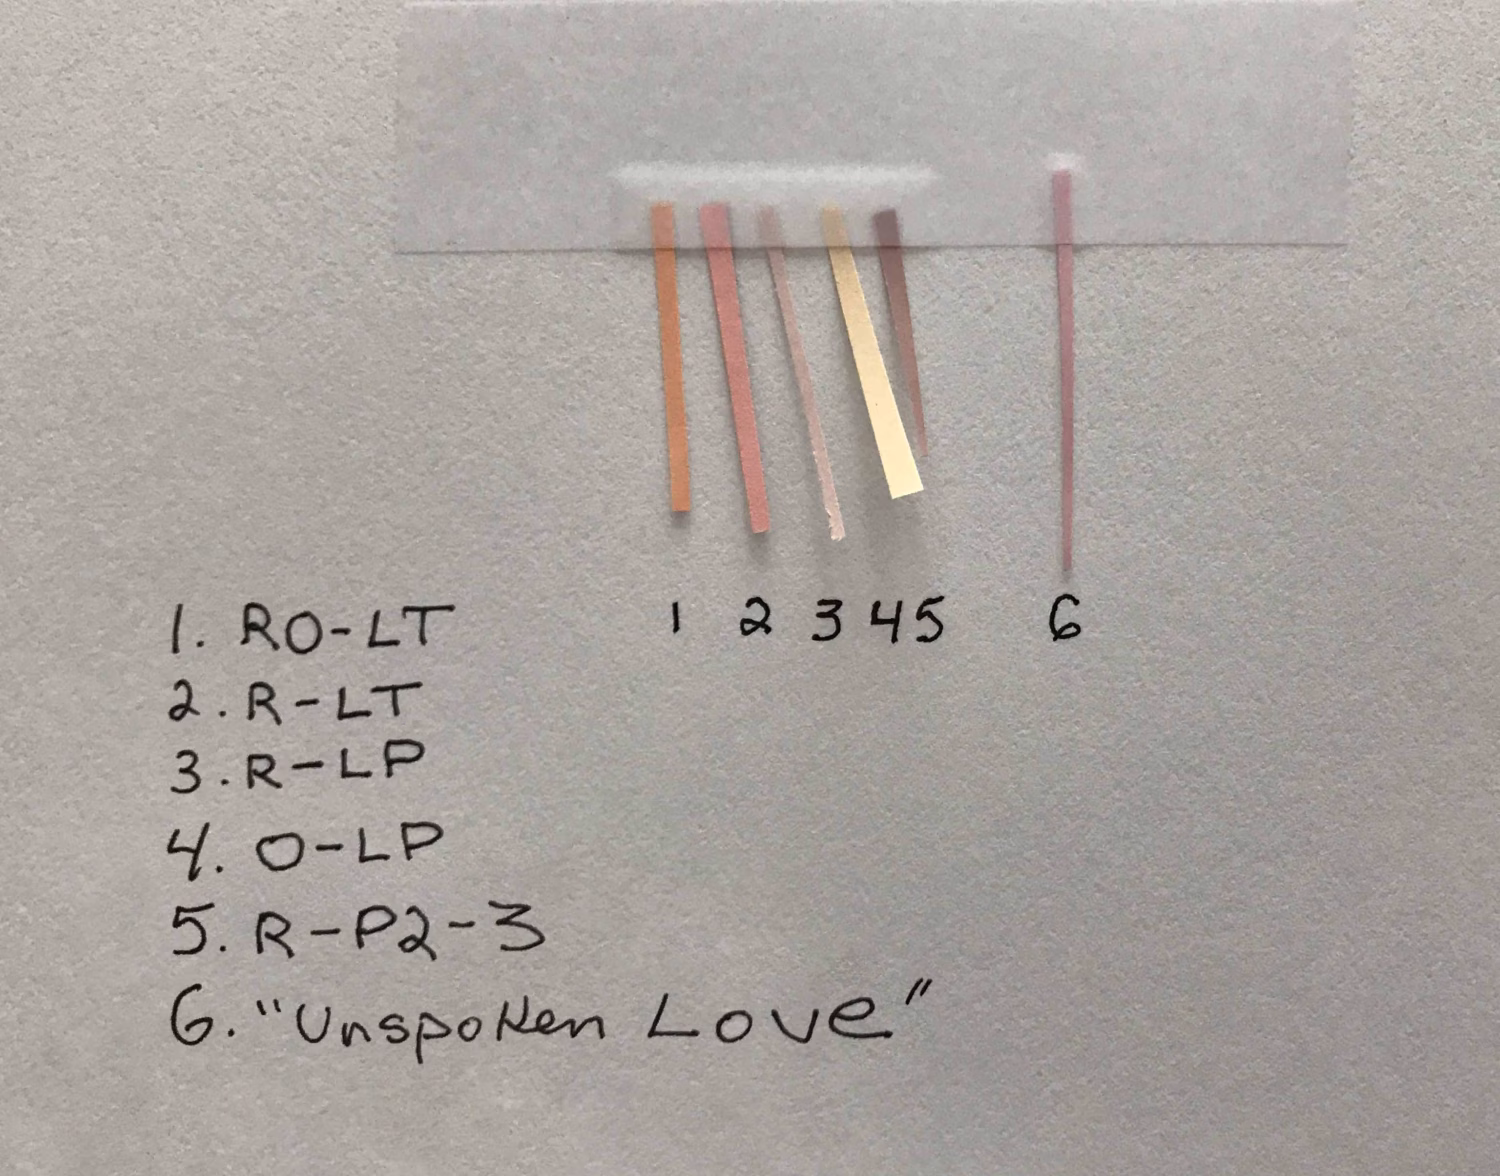 1 2 3 4 5 6
1. RO-LT
2. R-LT
3. R-LP
4. O-LP
5. R-P2-3
6. "Unspoken Love"